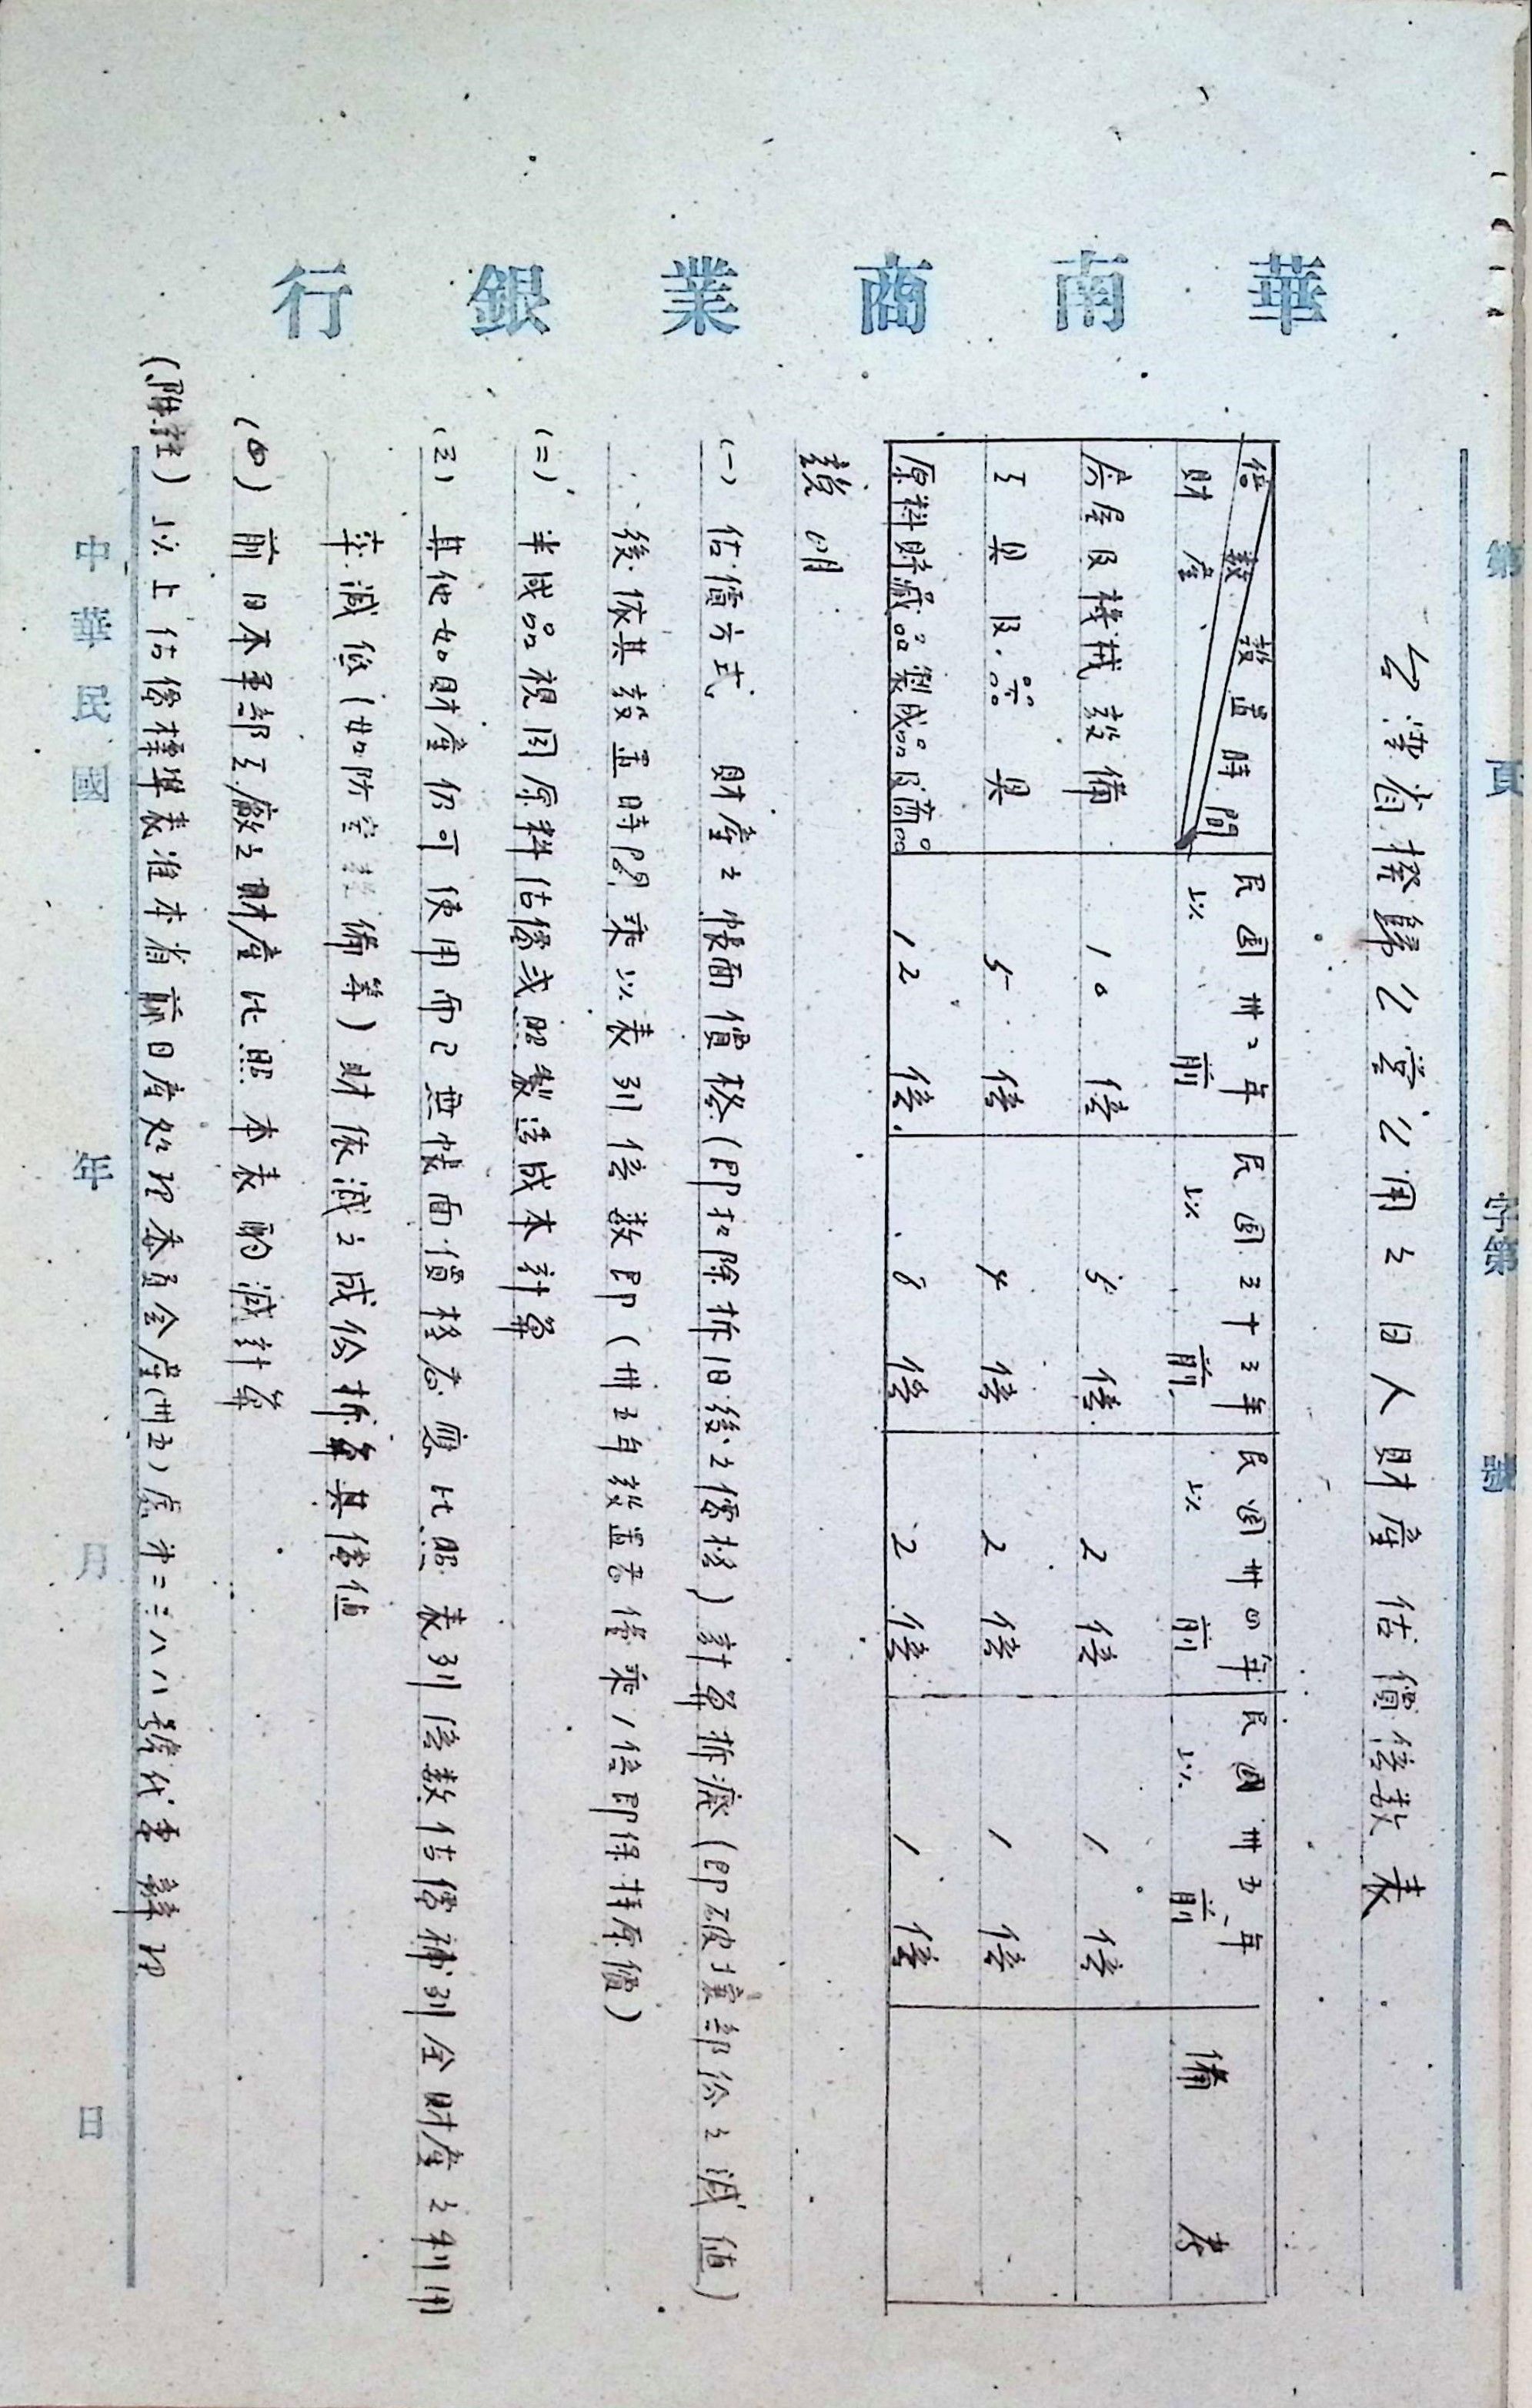 第 頁
華南商業銀行
台灣省撥歸公營公用之日人財產估價倍數表
倍數 設置時間 財產 民国卅二年以前 民国三十三年以前 民国卅四年以前 民國卅五年以前 備考
房屋及機械設備 10倍 5倍 2倍 1倍
工具及器具 5倍 4倍 2倍 1倍
原料貯藏品製成品及商品 12倍 8倍 2倍 1倍
說明
(一) 估價方式 財產之帳面價格(即扣除折旧後之價格)計算折廢(即破壞部份之減值)
後依其設置時間乘以表列倍數即(卅五年設置者僅乘1倍即保持原價)
(二) 半成品視同原料估價或照製造成本計算
(三) 其他如財產仍可使用而已無帳面價格者應比照表列倍數估價補列全財產之利用
率減低(如防空設備等)財依減之成份折算其價值
(四) 前日本軍部工廠之財產比照本表酌減計算
(附註) 以上估價標準表准本省前日產処理委員会產(卅五)處字二三八八號代電辦理
中華民國 年 月 日